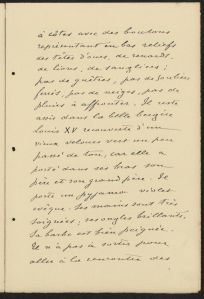 à côtes avec des boutons
représentant en bas reliefs
des têtes d'ours, de renards,
de lions, de sangliers ;
pas de guêtres, pas de souliers
ferrés, pas de neiges, pas de
pluies à affronter. Il reste
assis dans la belle bergère
Louis XV recouverte d'un
vieux velours vert un peu
passé de ton, car elle a
porté dans ses bras son
père et son grand père. Il
porte un pyjama violet
évêque. Ses mains sont très
soignées ; ses ongles brillants,
sa barbe est bien peignée.
Il n'a pas à sortir pour
aller à la rencontre des